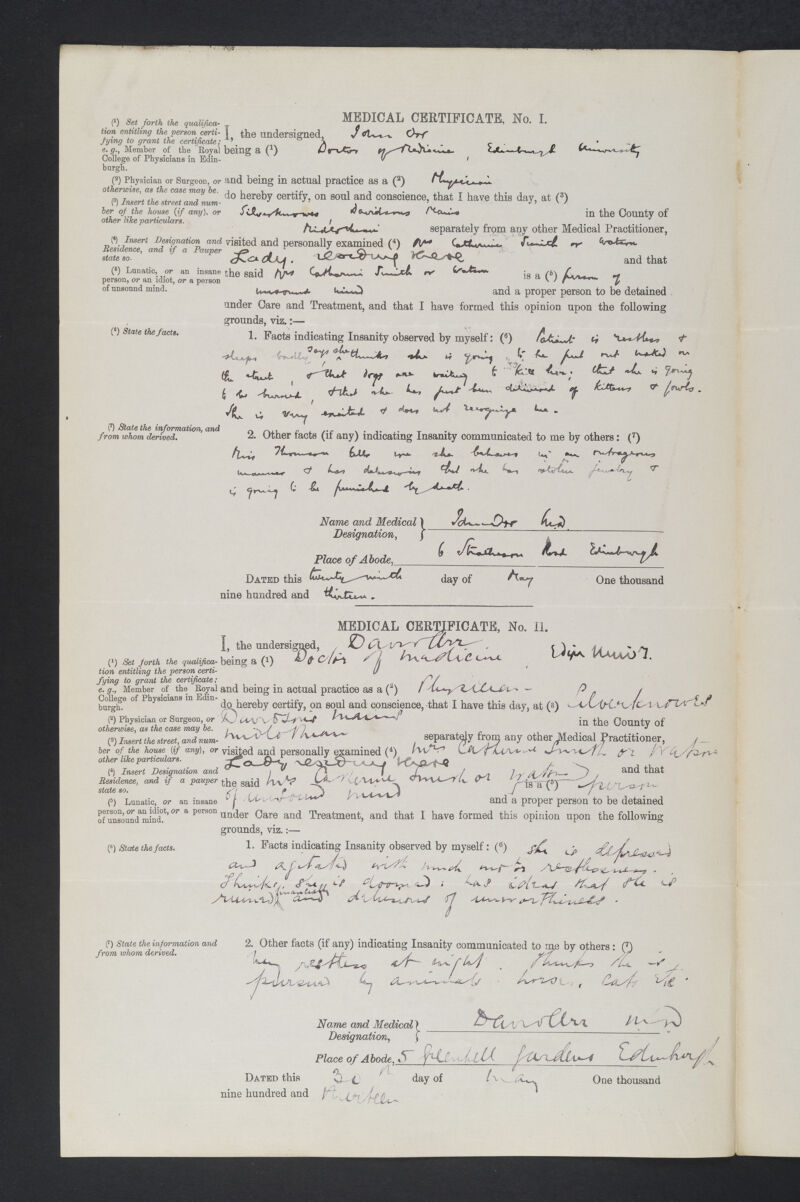 MEDICAL CERTIFICATE, No. I.
(1) Set forth the qualifica-
tion entitling the person certi-
fying to grant the certificate;
e.g., Member of the Royal
College of Physicians in Edin-
burgh.
I, the undersigned, John Orr
being a (1) Doctor of Medicine, Edinburgh University
(2) Physician or Surgeon, or
otherwise, as the case may be.
and being in actual practice as a (2) Physician
(3) Insert the street and num-
ber of the house (if any), or
other like particulars.
do hereby certify, on soul and conscience, that I have this day, at (3)
Silverknowes, Davidsons Mains in the County of
Midlothian separately from any other Medical Practitioner,
(4) Insert Designation and
Residence, and if a Pauper
state so.
visited and personally examined (4) Mrs Catherine Smith or Watson
Lady. residing there and that
(5) Lunatic, or an insane
person, or an idiot, or a person
of unsound mind.
the said Mrs Catherine Smith or Watson is a (5) person of
unsound mind and a proper person to be detained
under Care and Treatment, and that I have formed this opinion upon the following
grounds, viz.:—
(6) State the facts.
1. Facts indicating Insanity observed by myself: (6) Patient is restless &
sleeps badly, says she thinks she is going to be put out naked on
the street, & that dogs are waiting to kill her; that she is going
to be burned, & that she has just been delivered of kittens & fowls.
She is very excited & does not recognize me.
(7) State the information, and
from whom derived.
2. Other facts (if any) indicating Insanity communicated to me by others: (7)
Miss Thomson tells me she behaves in an outrageous
manner & has delusions that she has stolen jewelry &
is going to be punished by death.
Name and Medical
Designation, John Orr M.D.
Place of Abode, 6 Strathearn Road Edinburgh
DATED this twenty ninth day of May One thousand
nine hundred and thirteen.
MEDICAL CERTIFICATE, No. II.
I, the undersigned, David Orr
(1) Set forth the qualifica-
tion entitling the person certi-
fying to grant the certificate;
e.g., Member of the Royal
College of Physicians in Edin-
burgh.
being a (1) Doctor of Medicine, Edin Univ.
and being in actual practice as a (2) Physician
(2) Physician or Surgeon, or
otherwise, as the case may be.
do hereby certify, on soul and conscience, that I have this day, at (3) Silverknowes
Davidsons Mains in the County of
(3) Insert the street, and num-
ber of the house (if any), or
other like particulars.
Midlothian separately from any other Medical Practitioner,
visited and personally examined (4) Mrs Catherine Smith or Watson
(4) Insert Designation and
Residence, and if a pauper
state so.
Lady residing there and that
the said Mrs Catherine Smith or Watson is a (5) person
(5) Lunatic, or an insane
person, or an idiot, or a person
of unsound mind.
of unsound mind and a proper person to be detained
under Care and Treatment, and that I have formed this opinion upon the following
grounds, viz.:—
(6) State the facts.
1. Facts indicating Insanity observed by myself: (6) She is depressed
and agitated with much motor restlessness.
Thinks she is doomed: has ideas that she is
ruined financially and delusions of unworthiness.
(7) State the information and
from whom derived.
2. Other facts (if any) indicating Insanity communicated to me by others: (7)
Very restless at night. Thinks she is
pursued by animals – horses, cats etc.
Name and Medical
Designation, David Orr M.D
Place of Abode, 5 Greenhill Gardens Edinburgh
DATED this 30th day of May One thousand
nine hundred and thirteen